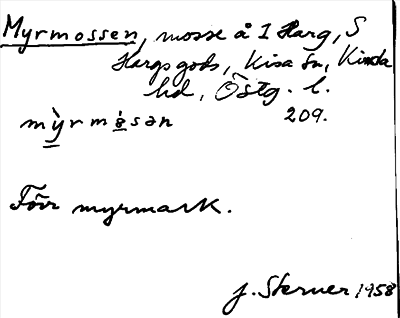 Myrmossen, mosse å I Harg, S
Hargs gods, Kisa sn, Kinda
hd, Östg. l.
209.
Förr myrmark.
J. Sterner 1958